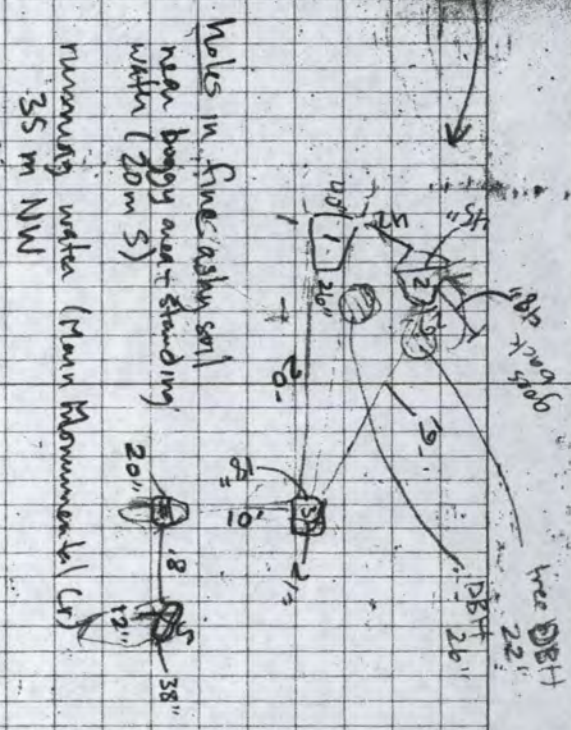 tree DBH
22"
DBH
26"
goes
back
48"
45"
2
19'
40"
1
26"
20'
18"
3
21"
10'
20"
8'
5
12"
38"
holes in fine ashy soil
near boggy area + standing
water (20m S)
running water (Main Monumental Cr)
35 m NW